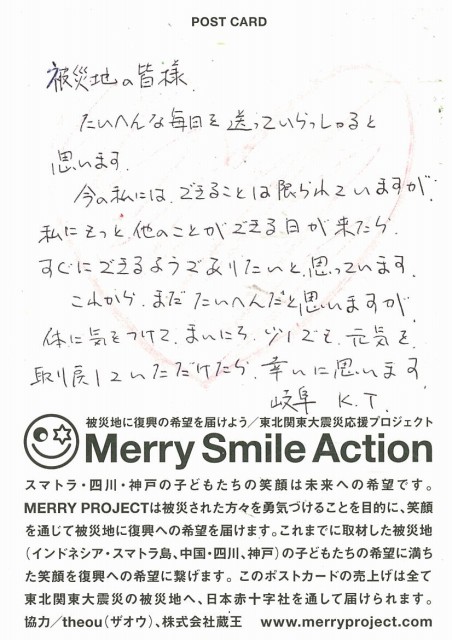 POST CARD
被災地の皆様
たいへんな毎日を送っていらっしゃると
思います.
今の私には、できることは限られていますが、
私にもっと他のことができる日が来たら、
すぐにできるようでありたいと、思っています.
これから、まだたいへんだと思いますが、
体に気をつけて、まいにち、少しでも、元気を、
取り戻していただけたら、幸いに思います.
岐阜 K.T.
被災地に復興の希望を届けよう／東北関東大震災応援プロジェクト
Merry Smile Action
スマトラ・四川・神戸の子どもたちの笑顔は未来への希望です。
MERRY PROJECTは被災された方々を勇気づけることを目的に、笑顔
を通じて被災地に復興への希望を届けます。これまでに取材した被災地
（インドネシア・スマトラ島、中国・四川、神戸）の子どもたちの希望に満ち
た笑顔を復興への希望に繋げます。このポストカードの売上げは全て
東北関東大震災の被災地へ、日本赤十字社を通して届けられます。
協力／theou（ザオウ）、株式会社蔵王 www.merryproject.com